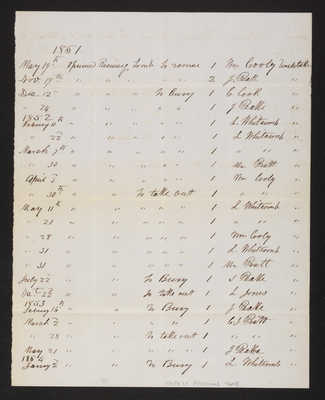 1851
May 19th opened Receiving Tomb to remove 1 Mr Cooly Undertaker
Nov. 19th " " " " " 2 J. Peak "
Dec. 12 " " " to Bury 1 C Cook "
" 24 " " " " " 1 J Peake "
1852
Jan'y " " " " " 1 L Whitcomb "
" 22d " " " " " 1 L Whitcomb "
March 9th " " " " " 1 " "
" 30 " " " " " 1 Mr Pratt "
April " " " " " 1 Mr Cooly "
" 30th " " " to take out 1 " "
May 11th " " " " " 1 L Whitcomb "
" 21 " " " " " 1 " "
" 28 " " " " " 1 Mr Cooly "
" 31 " " " " " 1 L Whitcomb "
" 31 " " " " " 1 Mr Pratt "
July 22 " " " to Bury 1 J Peake "
" " " to take out 1 L Jones "
1853
Jan'y 15th " " " to Bury 1 J Peake "
March " " " " " 1 Pratt "
" 28 " " " to take out 1 " "
May 21 " " " " " 1 J Peake "
1854
Jan'y 2 " " " to Bury 1 L Whitcomb "